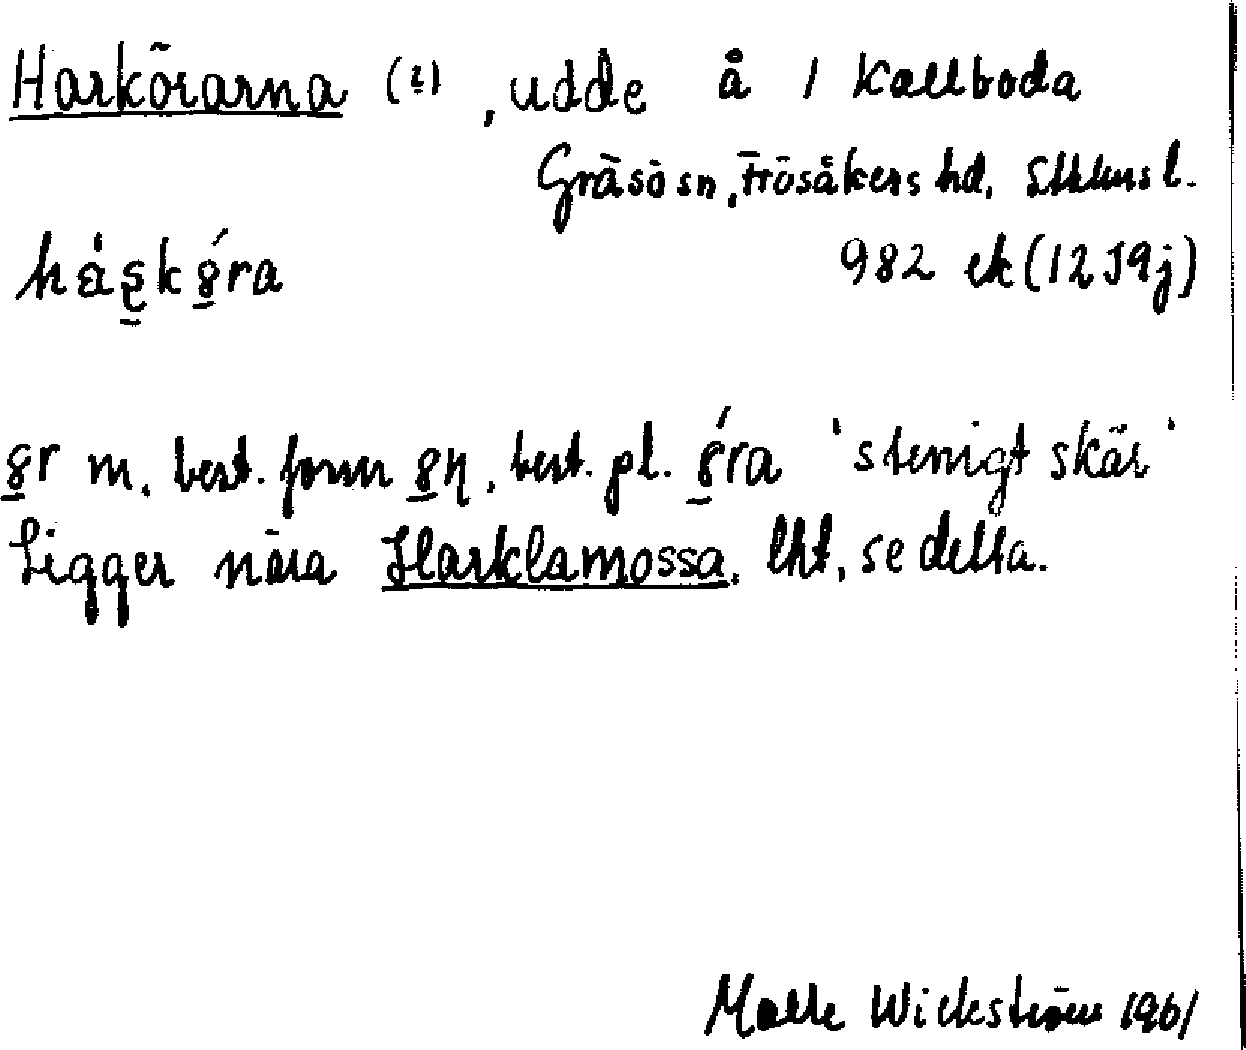 Harkörarna (?), udde å / Kallboda
Gräsö sn, Frösåkers hd, Sthlms l.
982 ek (12 I 9 j)
m. best. form best. pl. 'stenigt skär'
Ligger nära Harklamossa, lht, se detta.
Malte Wickström 1961